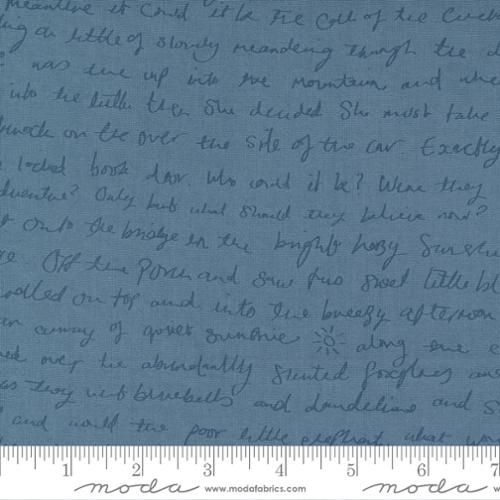 meantime it could it be the call of the Cuck
ing a little of slowly meandering through the d
was the up into the mountains and whe
into the little then She decided She must take
knock on the over the side of the car. Exactly
locked book door. Who could it be? Were they
dventure? Only but what should they believe now?
onto the bridge in the bright hazy Sunshi
Off the Porch and saw two sweet little bl
oodled on top and into the breezy afternoon
an away of sunshine along the
over the abundantly Scented foxgloves an
as they bluebells and dandelions and S
and would the poor little elephant what wo
1 2 3 4 5 6 7
moda www.modafabrics.com moda